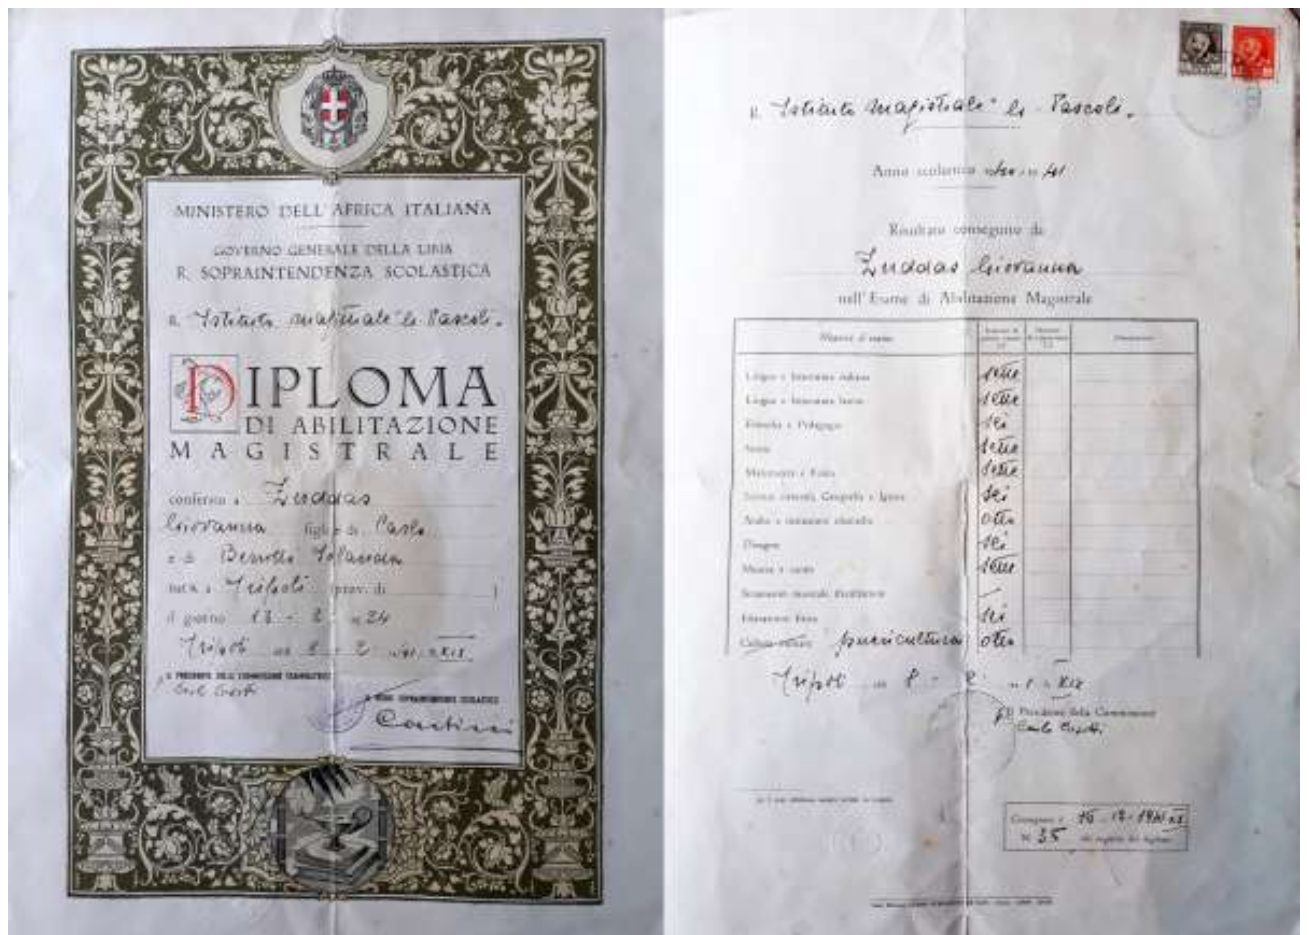 MINISTERO DELL'AFRICA ITALIANA
GOVERNO GENERALE DELLA LIBIA
R. SOPRAINTENDENZA SCOLASTICA
R. Istituto magistrale "G. Pascoli"
DIPLOMA
DI ABILITAZIONE
MAGISTRALE
conferito a Zuddas
Giovanna figlia di Carlo
e di
nata a Tripoli (prov. di )
il giorno 13 - 2 - 1924
Tripoli 8 - 2 XIX
IL PRESIDENTE DELLA COMMISSIONE ESAMINATRICE
IL REGIO SOPRAINTENDENTE SCOLASTICO
Contini
R. Istituto magistrale "G. Pascoli"
Anno scolastico 1940 - 19 41
Risultato conseguito da
Zuddas Giovanna
nell'Esame di Abilitazione Magistrale
Materie d'esame
Lingua e letteratura italiana sette
Lingua e letteratura latina sette
Filosofia e Pedagogia sei
Storia sette
Matematica e Fisica sette
Scienze naturali, Geografia e Igiene sei
otto
Disegno sei
Musica e canto sette
Strumento musicale (facoltativo) —
Educazione fisica sei
Cultura militare puericultura otto
Tripoli 8 - 2 XIX
Il Presidente della Commissione
Consegnato il 16 - 12 - 1941 XX
N. 35 del registro dei diplomi